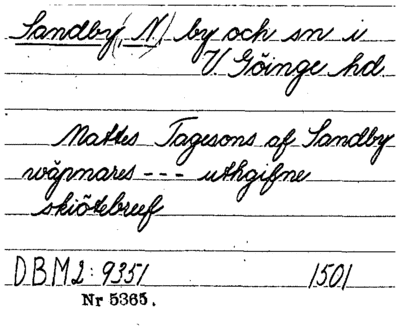 Sandby (, N.) by och sn i
V. Göinge hd.
Mattes Tagesons af Sandby
wäpnares --- uthgifne
skiötebreef
DBM2: 9351 1501
Nr 5365.